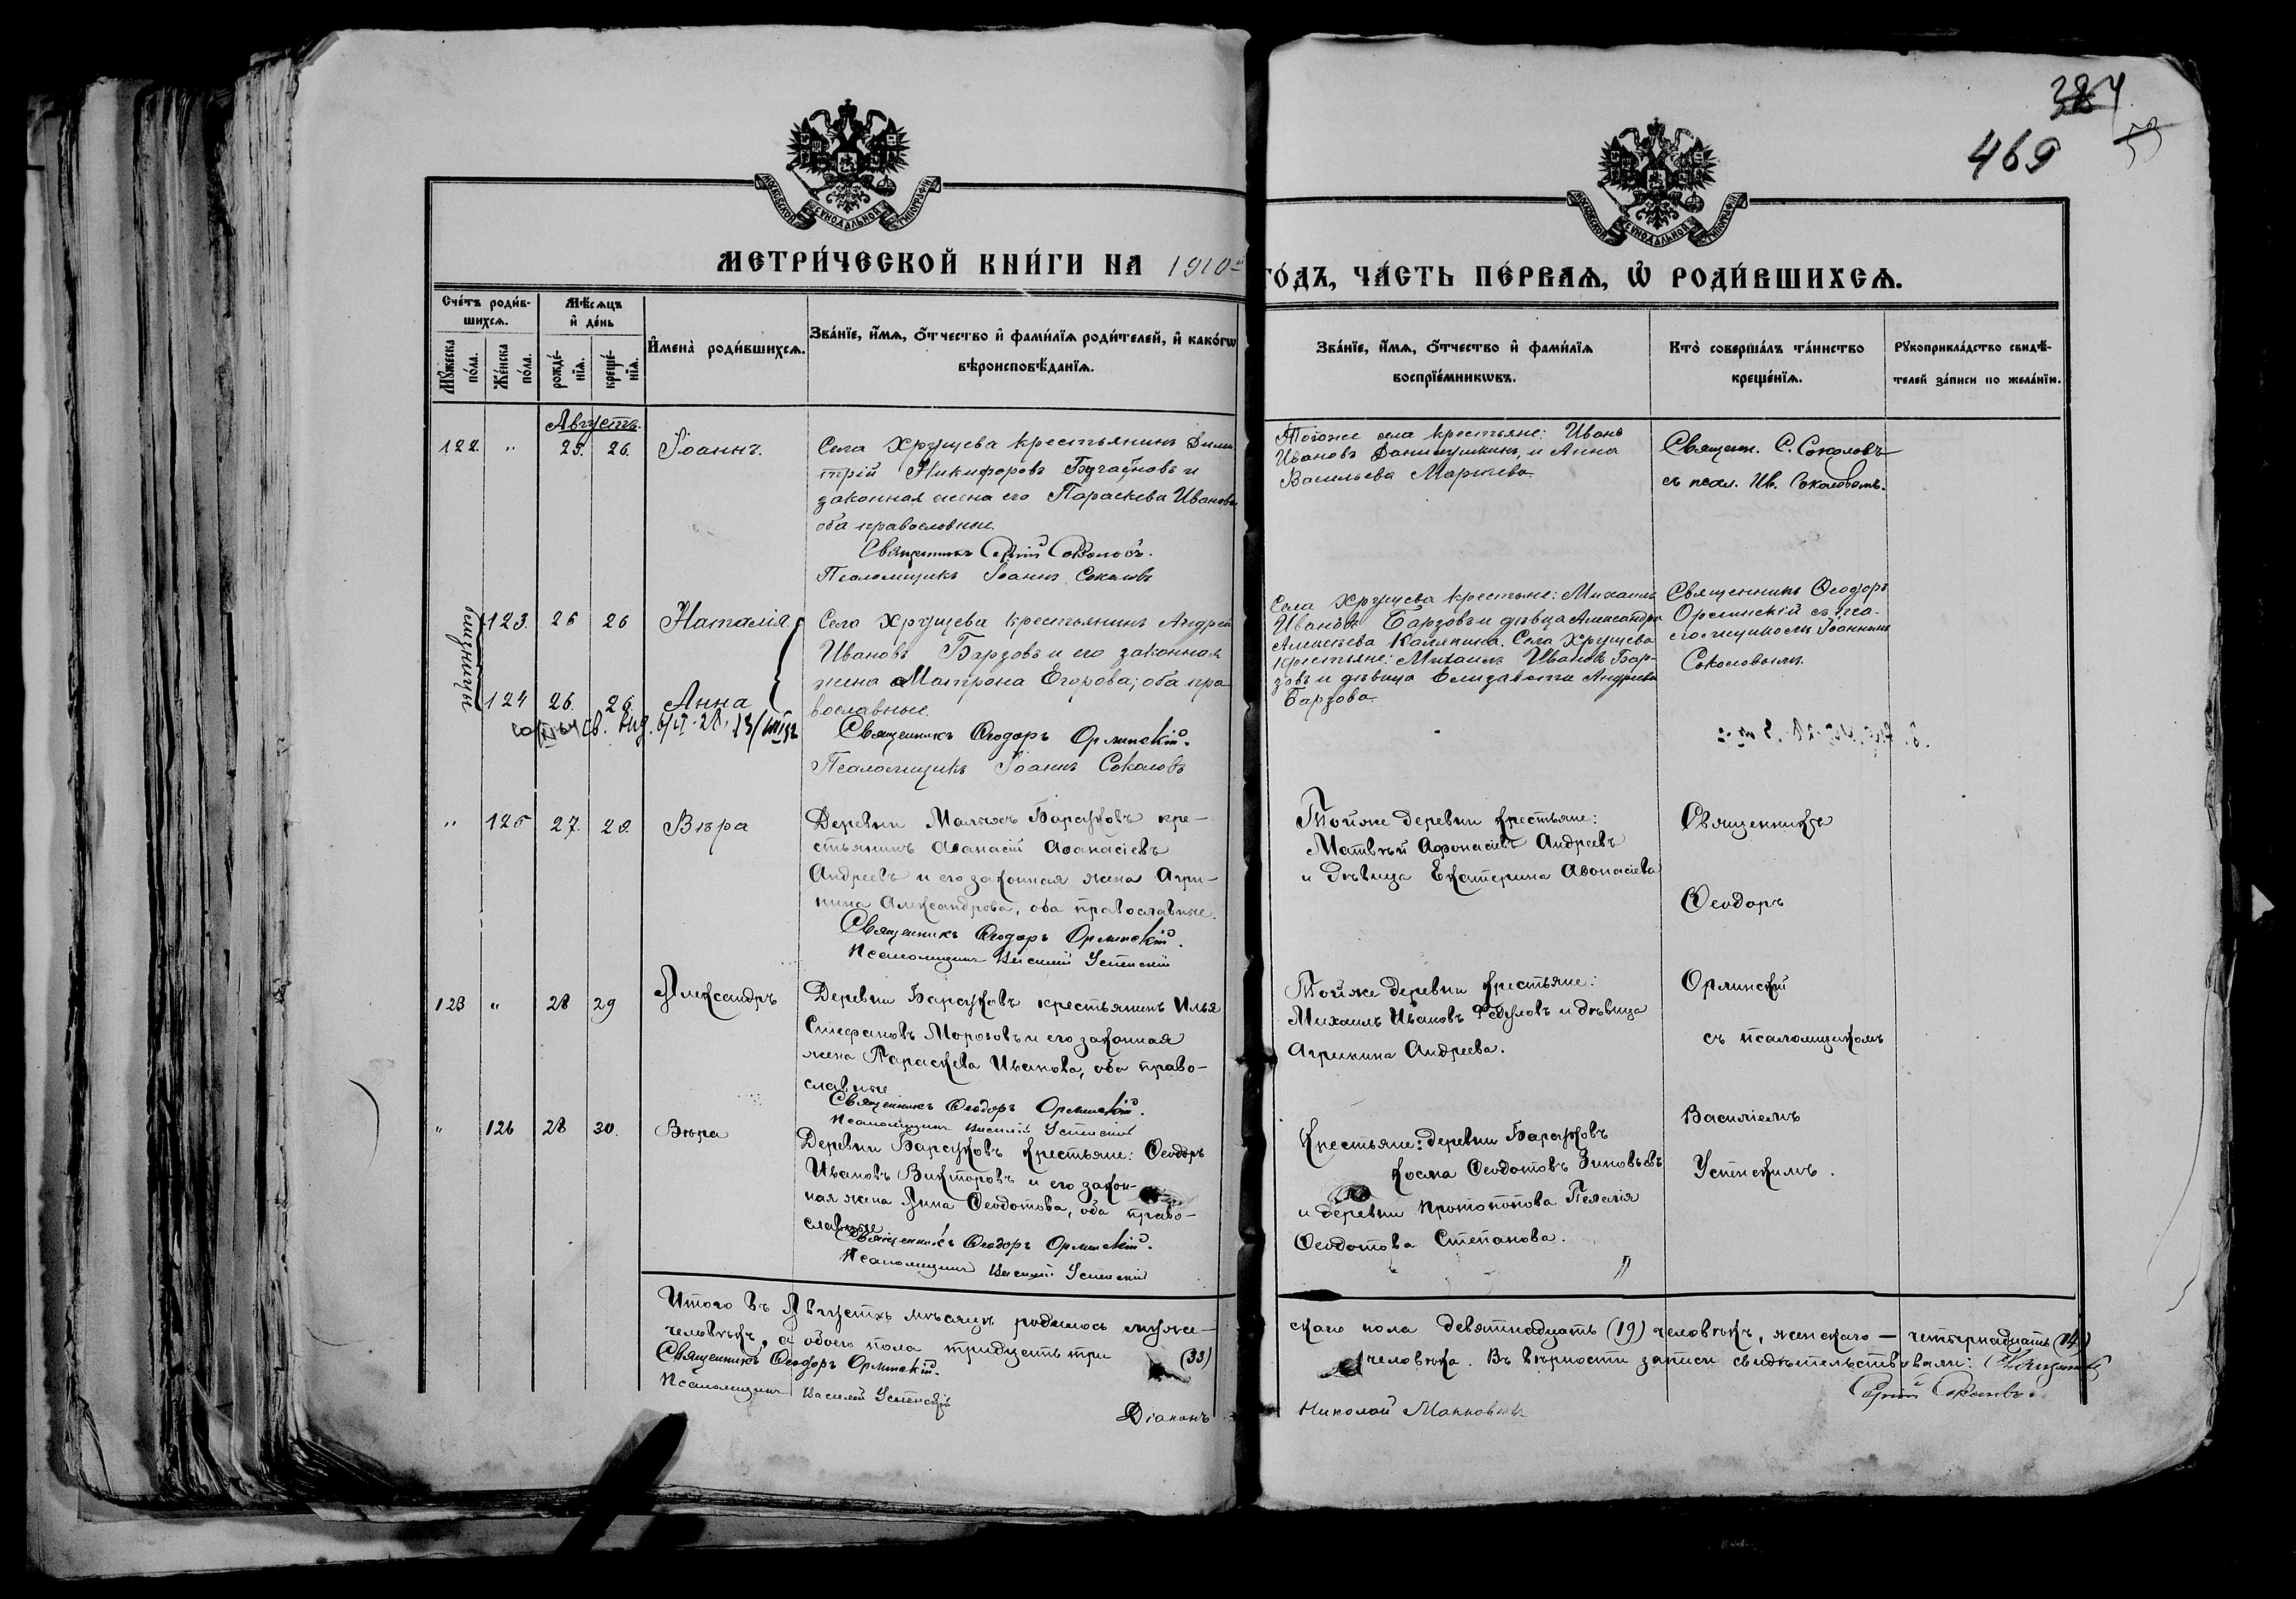 384
469
МОСКОВСКОЙ СѴНОДАЛЬНОЙ ТИПОГРАФІИ
МОСКОВСКОЙ СѴНОДАЛЬНОЙ ТИПОГРАФІИ
МЕТРИ́ЧЕСКОЙ КНИ́ГИ НА 1910й
ГО́ДЪ, ЧА́СТЬ ПЕ́РВАѦ, Ѡ҆ РОДИ́ВШИХСѦ.
Сче́тъ роди́в-
шихсѧ.
Мꙋ́жеска по́ла.
Же́нска по́ла.
Мѣ́сѧцъ
и҆ де́нь
рожде́-
нїѧ.
креще́-
нїѧ.
И҆мена̀ роди́вшихсѧ.
Зва́нїе, и҆́мѧ, ѻ҆́тчество и҆ фами́лїѧ роди́телей, и҆ како́гѡ
вѣроисповѣ́данїѧ.
Зва́нїе, и҆́мѧ, ѻ҆́тчество и҆ фами́лїѧ
воспрїе́мникѡвъ.
Кто̀ соверша́лъ та́инство
креще́нїѧ.
Рꙋкоприкла́дство свидѣ́-
телей за́писи по жела́нїю.
Августъ.
122. " 25. 26. Іоаннъ.
Села Хрущева крестьянинъ Дими
трій Никифоровъ и
законная жена его Параскева Иванова
оба православные.
Священникъ Сергій Соколовъ.
Псаломщикъ Іоаннъ Соколовъ
Тогоже села крестьяне: Иванъ
Ивановъ и Анна
Васильева
Священ. С. Соколовъ
съ псал. Ив. Соколовымъ.
близницы
123. 26 26 Наталія.
124 26. 26. Анна
Села Хрущева крестьянинъ Андрей
Ивановъ Барзовъ и его законная
жена Матрона Егорова; оба пра
вославные.
Священникъ Ѳеодоръ Орлинскій.
Псаломщикъ Іоаннъ Соколовъ
Села Хрущева крестьяне: Михаилъ
Ивановъ Барзовъ и дѣвица Александра
Алексѣева Каляпина. Села Хрущева
крестьяне: Михаилъ Ивановъ Бар-
зовъ и дѣвица Елизавета Андреева
Барзова.
Священникъ Ѳеодоръ
Орлинскій съ пса-
ломщикомъ Іоанномъ
Соколовымъ.
" 125 27. 28. Вѣра
Деревни Малыхъ Барсуковъ кре-
стьянинъ Аѳанасій Аѳанасіевъ
Андреевъ и его законная жена Агри-
пина Александрова, оба православные.
Священникъ Ѳеодоръ Орлинскій.
Псаломщикъ Василій Успенскій
Тойже деревни крестьяне:
Матвѣй Афонасіевъ Андреевъ
и дѣвица Екатерина Аѳонасіева
Священникъ
Ѳеодоръ
Орлинскій
съ псаломщикомъ
Василіемъ
Успенскимъ.
123 " 28 29 Александръ
Деревни Барсуковъ крестьянинъ Илья
Стефановъ Морозовъ и его законная
жена Параскева Иванова, оба право-
славные
Священникъ Ѳеодоръ Орлинскій.
Псаломщикъ Василій Успенскій
Тойже деревни крестьяне:
Михаилъ Ивановъ Федуловъ и дѣвица
Агрипина Андреева.
" 126 28 30. Вѣра
Деревни Барсуковъ крестьяне: Ѳеодоръ
Ивановъ Викторовъ и его закон-
ная жена Анна Ѳеодотова, оба право-
славные
Священникъ Ѳеодоръ Орлинскій.
Псаломщикъ Василій Успенскій
Крестьяне: деревни Барсуковъ
Косма Ѳеодотовъ Зиновьевъ
и деревни Протопопова Пелагія
Ѳеодотова Степанова.
Итого въ Августѣ мѣсяцѣ родилось муже-
скаго пола девятнадцать (19) человѣкъ, женскаго — четырнадцать (14)
человѣкъ, а обоего пола тридцать три (33)
человѣка. Въ вѣрности записи свидѣтельствовали: Священникъ
Сергій Соколовъ.
Священникъ Ѳеодоръ Орлинскій.
Псаломщикъ Василій Успенскій
Діаконъ
Николай